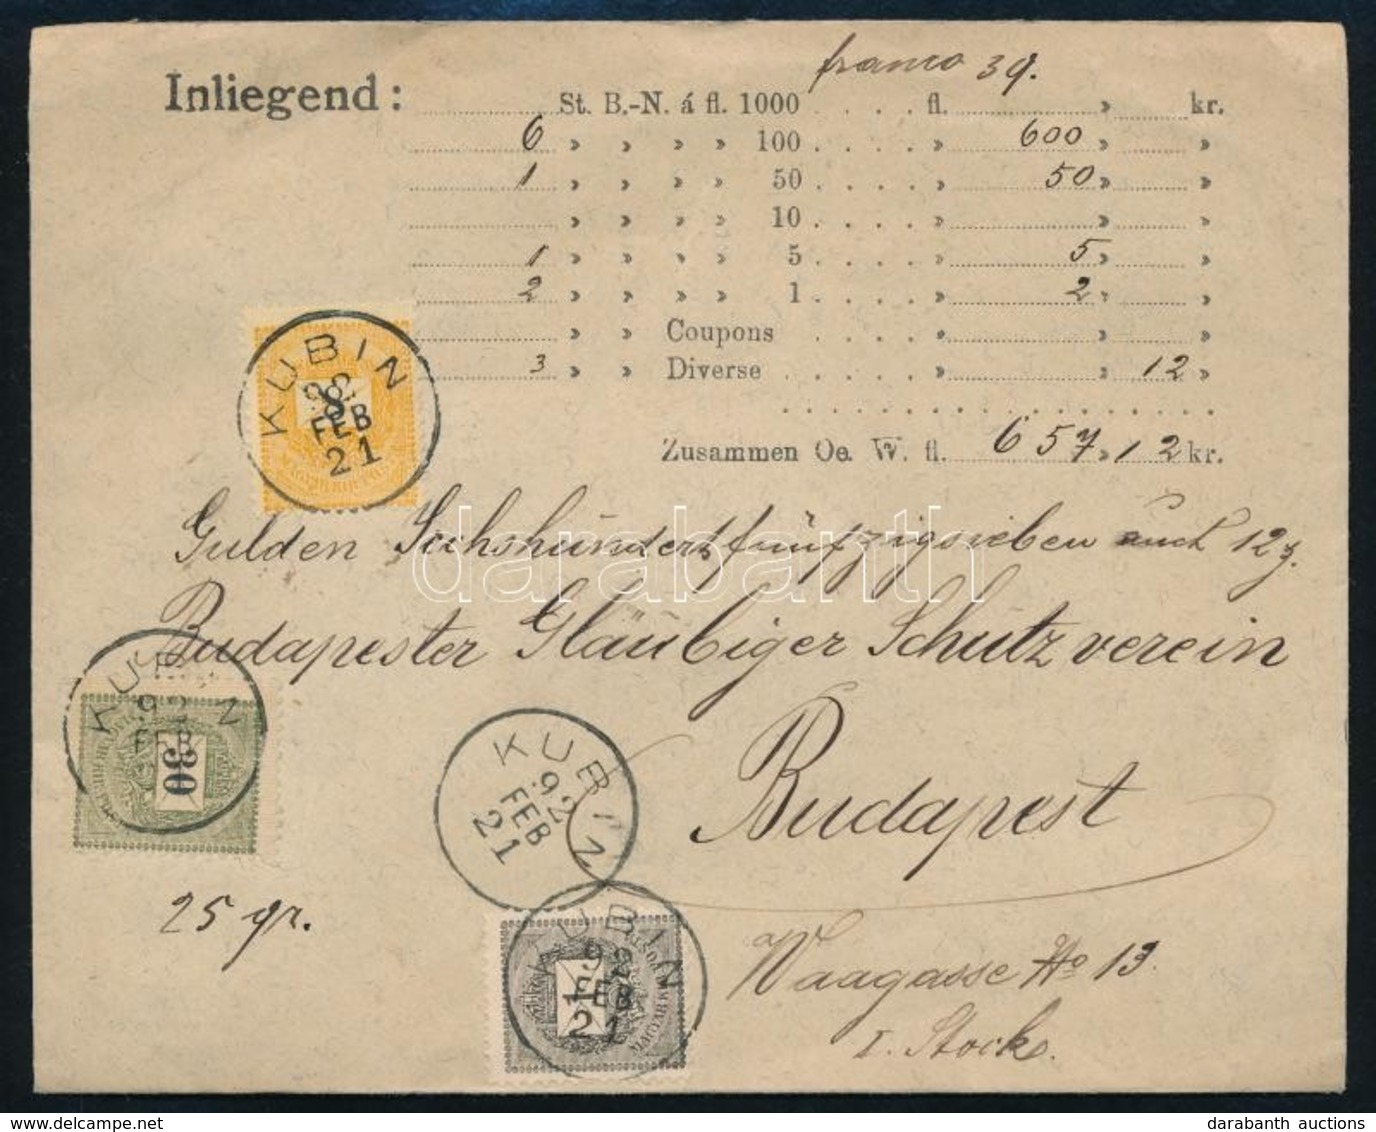 franco 39.
Inliegend: St. B.-N. á fl. 1000 . . . . fl. » kr.
6 » » » » 100 . . . . » 600 » »
1 » » » » 50 . . . . » 50 » »
» » » » 10 . . . . » » »
1 » » » » 5 . . . . » 5 » »
2 » » » » 1 . . . . » 2 » »
» » Coupons . . . . » » »
3 » » Diverse . . . . » » 12 »
Zusammen Oe. W. fl. 657 » 12 kr.
KUBIN
92
FEB
21
8
Gulden Sechshundertfünfzigsieben auch 12
darabanth
Budapester Gläubiger Schutzverein
KUBIN
92
FEB
30
KUBIN
92
FEB
21
Budapest
25 gr.
KUBIN
92
FEB
21
1
MAGYAR KIR. POSTA
Waagasse No 13
I. Stock.
darabanth auctions